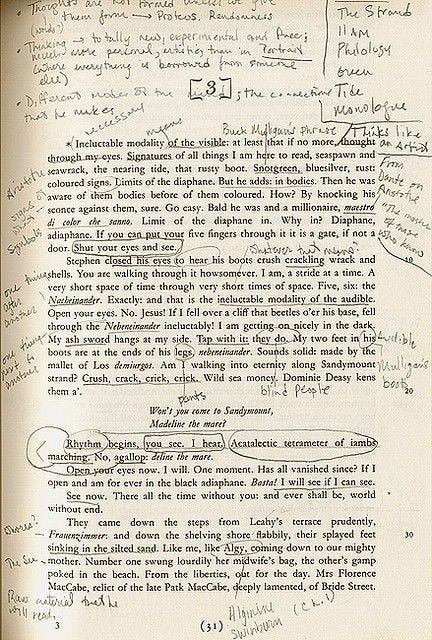 Thoughts are not formed unless we give
them form → Proteus. Randomness
(words)
Thinking → totally new, experimental and free;
much more personal, entities than in Portrait
(where everything is borrowed from someone
else)
• Different modes of the; the connections
that he makes
necessary
The Strand
11 AM
Philology
Green
Tide
Monologue
[3]
means
Buck Mulligan's phrase
Thinks like
an Artist
*Ineluctable modality of the visible: at least that if no more, thought
through my eyes. Signatures of all things I am here to read, seaspawn and
seawrack, the nearing tide, that rusty boot. Snotgreen, bluesilver, rust:
coloured signs. Limits of the diaphane. But he adds: in bodies. Then he was
aware of them bodies before of them coloured. How? By knocking his
sconce against them, sure. Go easy. Bald he was and a millionaire, maestro
di color che sanno. Limit of the diaphane in. Why in? Diaphane,
adiaphane. If you can put your five fingers through it it is a gate, if not a
door. Shut your eyes and see.
From
Dante on
Aristotle
"The master
of those
who know
symbols
whatever that means
Stephen closed his eyes to hear his boots crush crackling wrack and
10
shells. You are walking through it howsomever. I am, a stride at a time. A
very short space of time through very short times of space. Five, six: the
Nacheinander. Exactly: and that is the ineluctable modality of the audible.
Open your eyes. No. Jesus! If I fell over a cliff that beetles o'er his base, fell
through the Nebeneinander ineluctably! I am getting on nicely in the dark.
My ash sword hangs at my side. Tap with it: they do. My two feet in his
boots are at the ends of his legs, nebeneinander. Sounds solid: made by the
mallet of Los demiurgos. Am I walking into eternity along Sandymount
strand? Crush, crack, crick, crick. Wild sea money. Dominie Deasy kens
them a'.
20
one thing
after
another
one thing
next to
another
Audible
Mulligan's
boots
pants
blind people
Won't you come to Sandymount,
Madeline the mare?
Rhythm begins, you see. I hear. Acatalectic tetrameter of iambs
marching. No, agallop: deline the mare.
Open your eyes now. I will. One moment. Has all vanished since? If I
open and am for ever in the black adiaphane. Basta! I will see if I can see.
See now. There all the time without you: and ever shall be, world
without end.
They came down the steps from Leahy's terrace prudently,
Frauenzimmer: and down the shelving shore flabbily, their splayed feet
30
sinking in the silted sand. Like me, like Algy, coming down to our mighty
mother. Number one swung lourdily her midwife's bag, the other's gamp
poked in the beach. From the liberties, out for the day. Mrs Florence
MacCabe, relict of the late Patk MacCabe, deeply lamented, of Bride Street.
whores?
The Sea
Raw material that he
will read
Algernon
Swinburn
(Ch. 1)
3
(31)